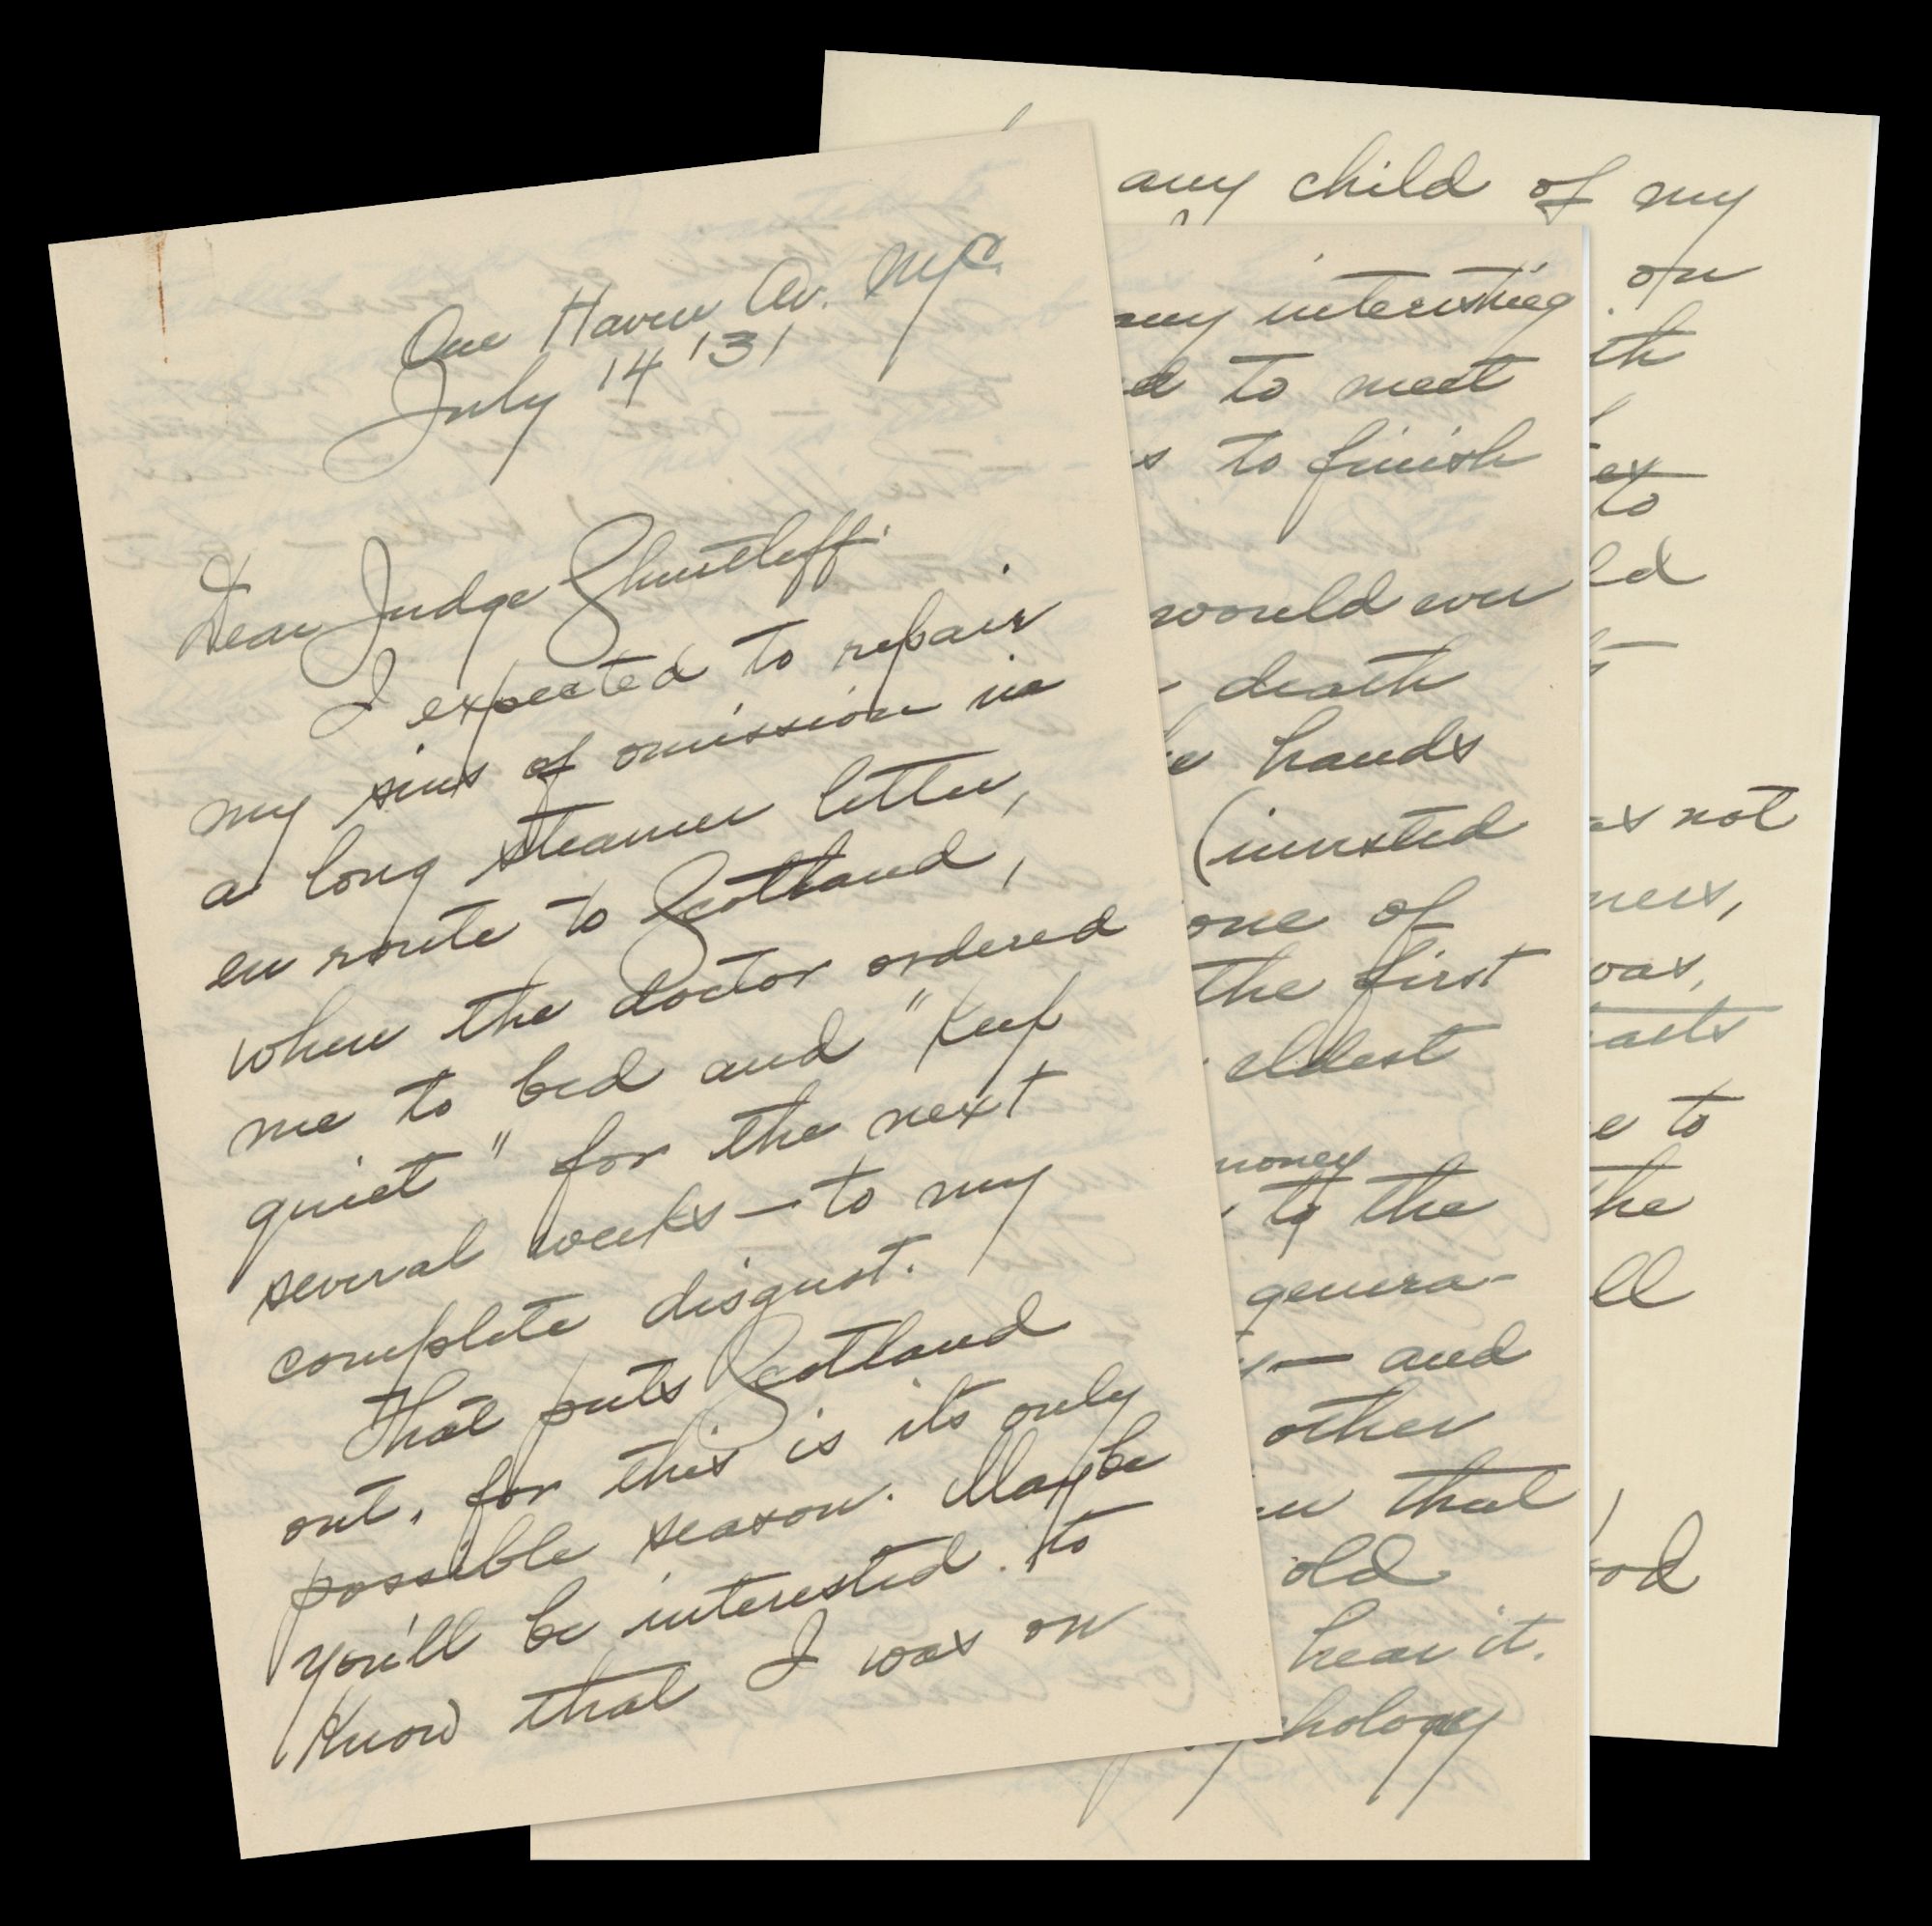 One Haven Av. NYC.
July 14 '31
Dear Judge Shurtleff:
I expected to repair
my sins of omission in
a long steamer letter,
en route to Scotland,
when the doctor ordered
me to bed and "keep
quiet" for the next
several weeks — to my
complete disgust.
That puts Scotland
out, for this is its only
possible season. Maybe
you'll be interested to
know that I was on
any interesting
to meet
to finish
would ever
death
hands
(invested
one of
the first
eldest
money
to the
genera-
— and
other
that
old
hear it.
any child of my
on
to
not
was,
to